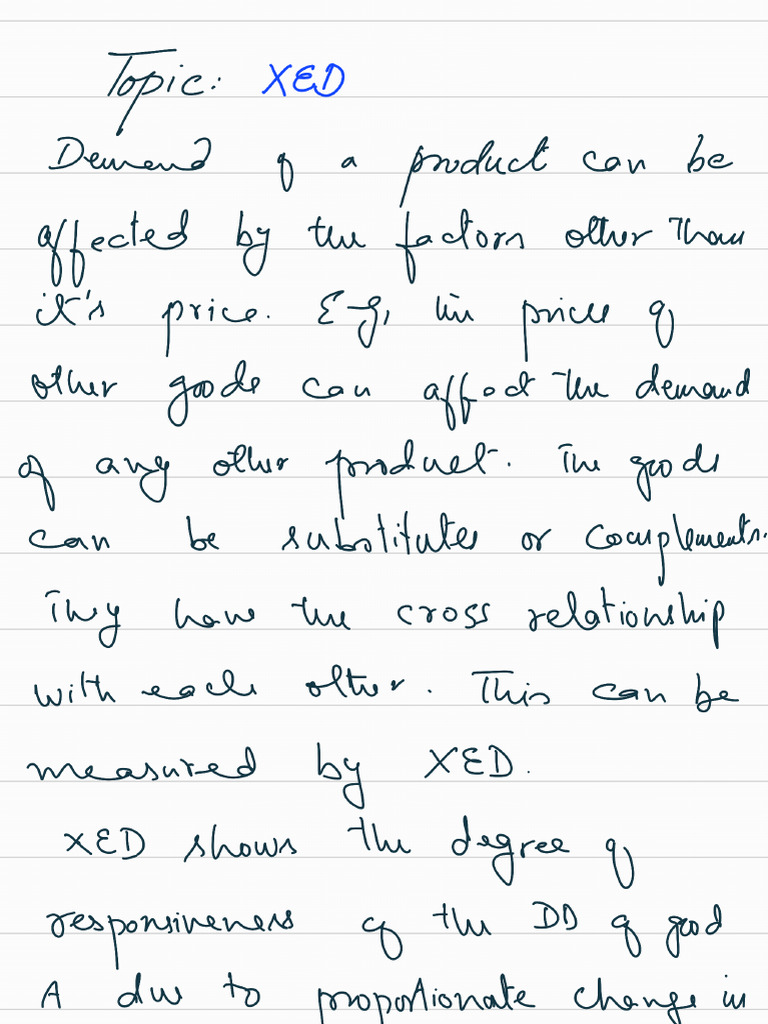 Topic: XED
Demand of a product can be
affected by the factors other than
it's price. Eg, the price of
other goods can affect the demand
of any other product. The goods
can be substitutes or complements.
They have the cross relationship
with each other. This can be
measured by XED.
XED shows the degree of
responsiveness of the DD of good
A due to proportionate change in